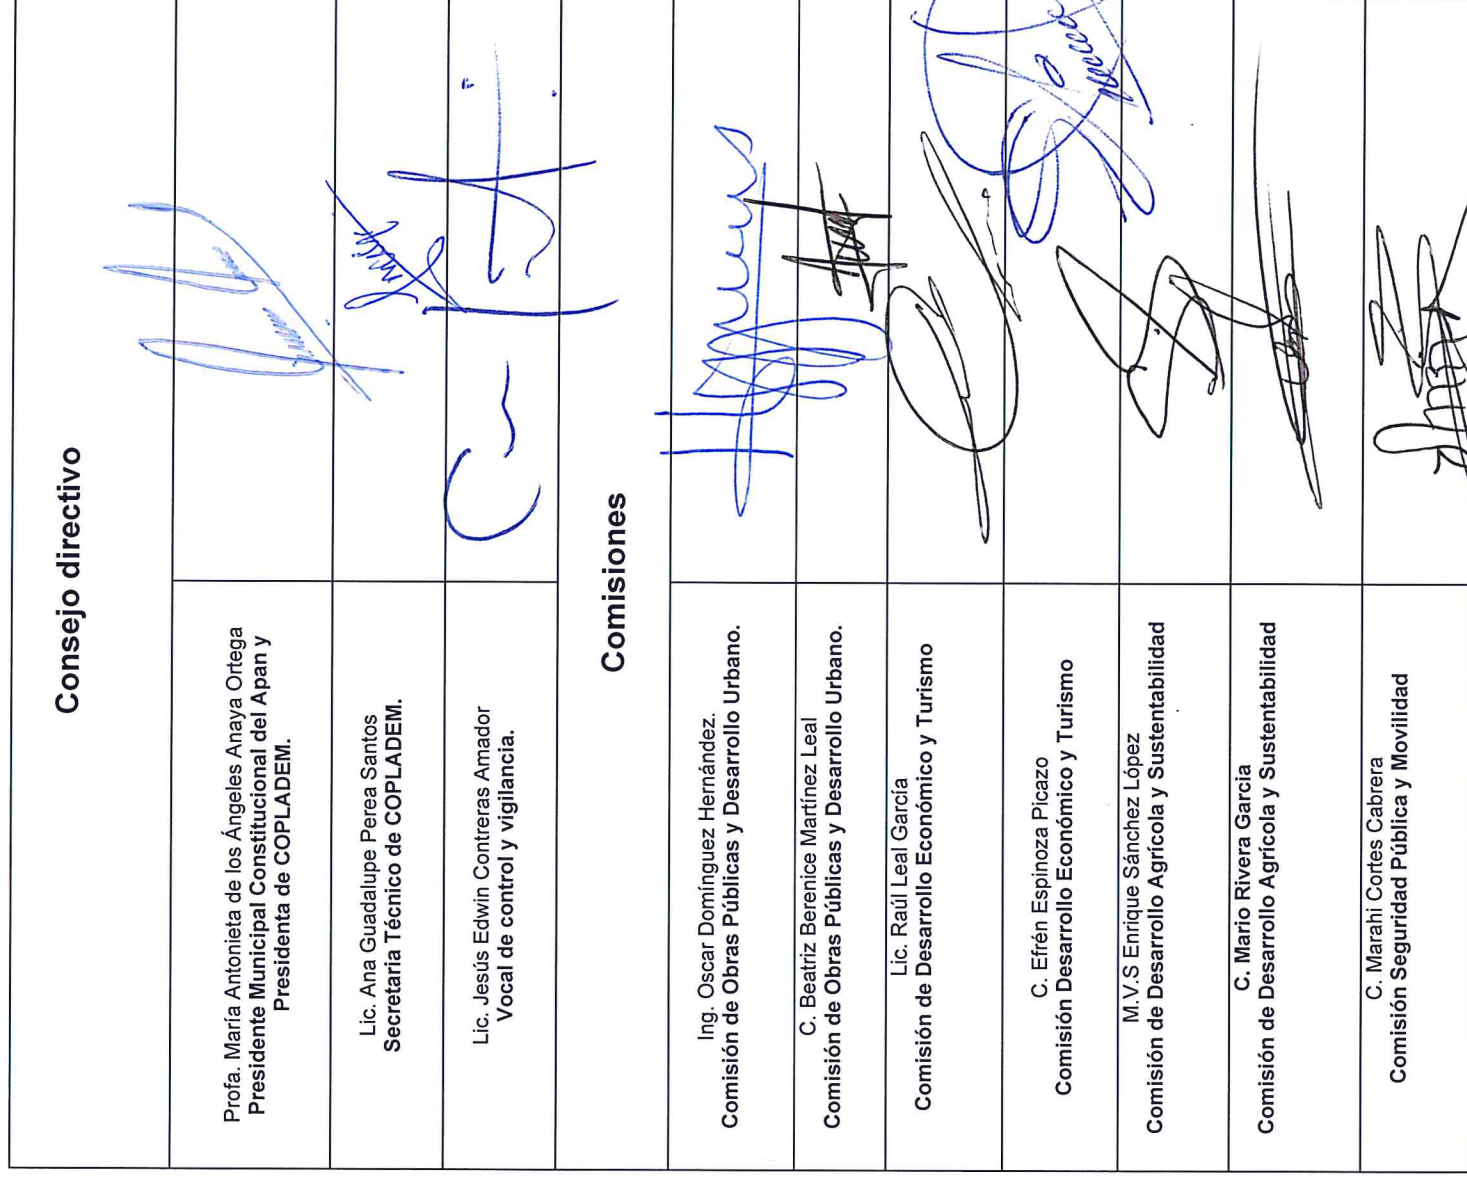 Consejo directivo
Profa. María Antonieta de los Ángeles Anaya Ortega
Presidente Municipal Constitucional del Apan y
Presidenta de COPLADEM.
Lic. Ana Guadalupe Perea Santos
Secretaria Técnico de COPLADEM.
Lic. Jesús Edwin Contreras Amador
Vocal de control y vigilancia.
Comisiones
Ing. Oscar Domínguez Hernández.
Comisión de Obras Públicas y Desarrollo Urbano.
C. Beatriz Berenice Martínez Leal
Comisión de Obras Públicas y Desarrollo Urbano.
Lic. Raúl Leal García
Comisión de Desarrollo Económico y Turismo
C. Efrén Espinoza Picazo
Comisión Desarrollo Económico y Turismo
M.V.S Enrique Sánchez López
Comisión de Desarrollo Agrícola y Sustentabilidad
C. Mario Rivera Garcia
Comisión de Desarrollo Agrícola y Sustentabilidad
C. Marahi Cortes Cabrera
Comisión Seguridad Pública y Movilidad